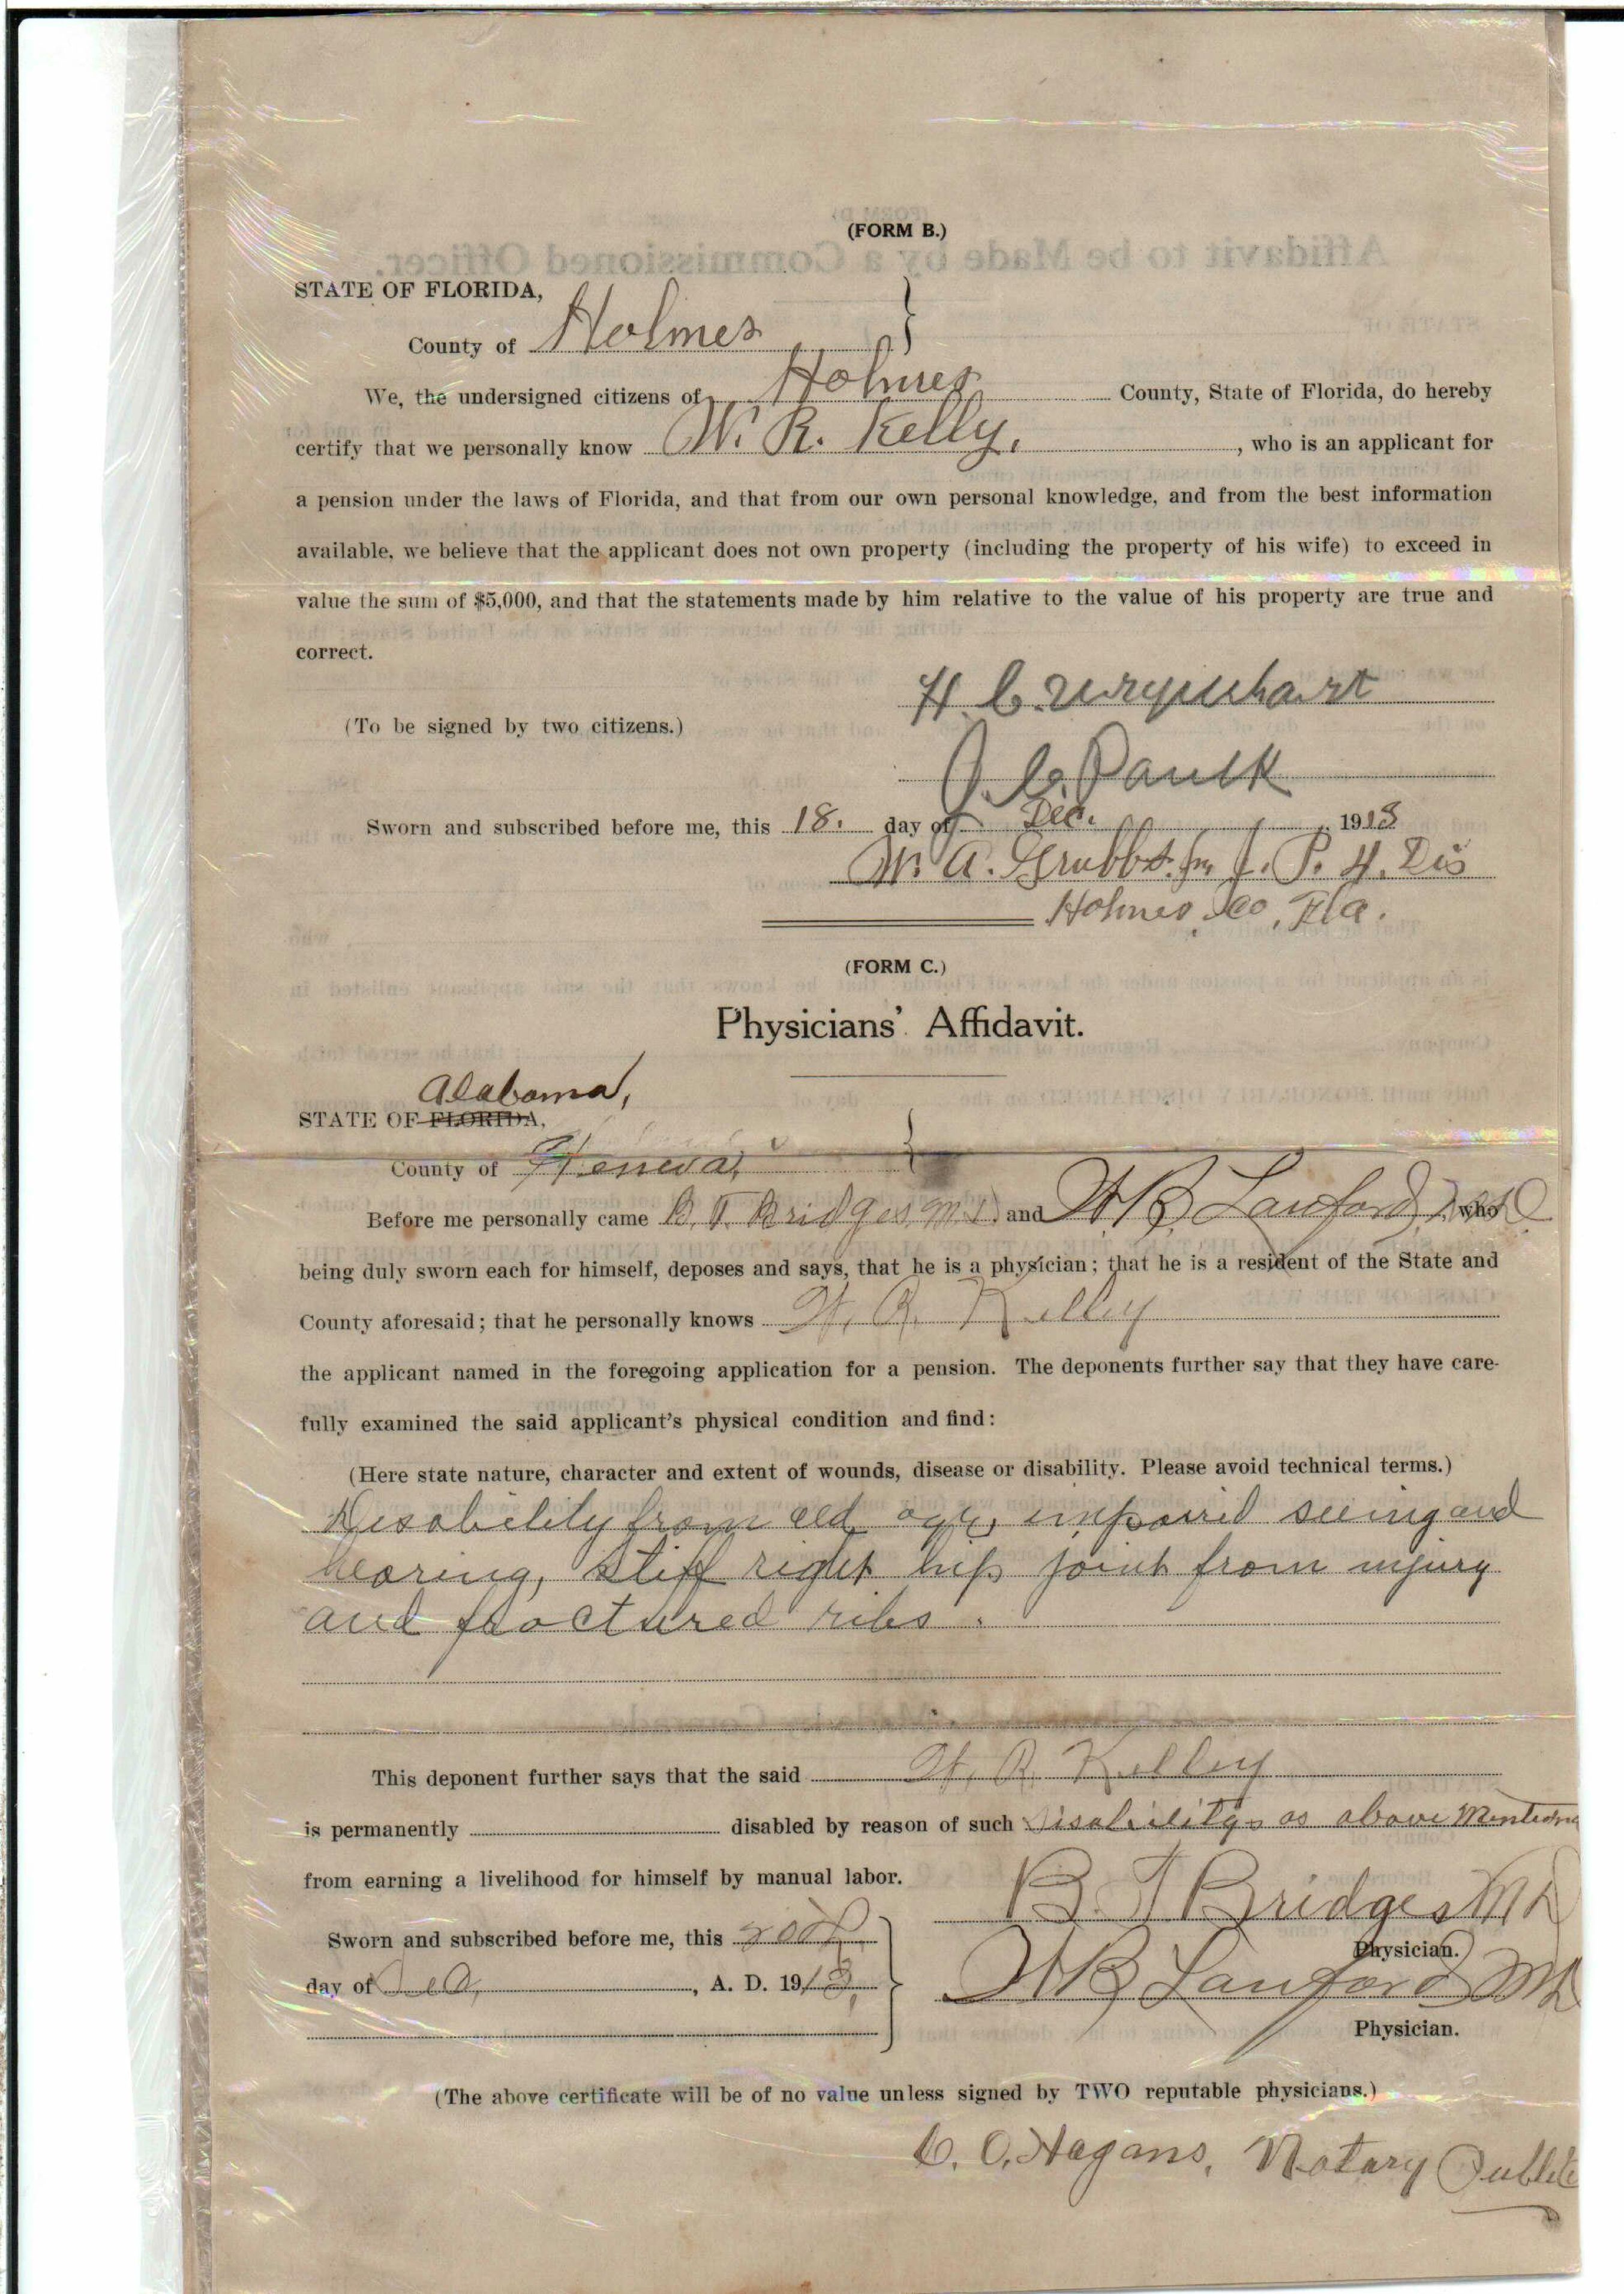 (FORM B.)
STATE OF FLORIDA,
County of Holmes
We, the undersigned citizens of Holmes County, State of Florida, do hereby
certify that we personally know W. R. Kelly, , who is an applicant for
a pension under the laws of Florida, and that from our own personal knowledge, and from the best information
available, we believe that the applicant does not own property (including the property of his wife) to exceed in
value the sum of $5,000, and that the statements made by him relative to the value of his property are true and
correct.
H. C.
(To be signed by two citizens.)
J. C. Paulk
Sworn and subscribed before me, this 18. day of Dec. , 1913
W. A. Grubbs. J. P. 4. Dis
Holmes Co, Fla.
(FORM C.)
Physicians' Affidavit.
Alabama,
STATE OF FLORIDA,
County of Geneva,
Before me personally came B. T. Bridges M D and W B Lawford, M D who
being duly sworn each for himself, deposes and says, that he is a physician; that he is a resident of the State and
County aforesaid; that he personally knows W. R. Kelley
the applicant named in the foregoing application for a pension. The deponents further say that they have care-
fully examined the said applicant's physical condition and find:
(Here state nature, character and extent of wounds, disease or disability. Please avoid technical terms.)
Disability from old age, impaired seeing and
hearing, stiff right hip joint from injury
and fractured ribs.
This deponent further says that the said W. R. Kelley
is permanently disabled by reason of such disability as above
from earning a livelihood for himself by manual labor.
B. T Bridges M D
Sworn and subscribed before me, this 20th
Physician.
day of Dec, , A. D. 1913,
W B Lawford M D
Physician.
(The above certificate will be of no value unless signed by TWO reputable physicians.)
C. O. Hagans, Notary Public